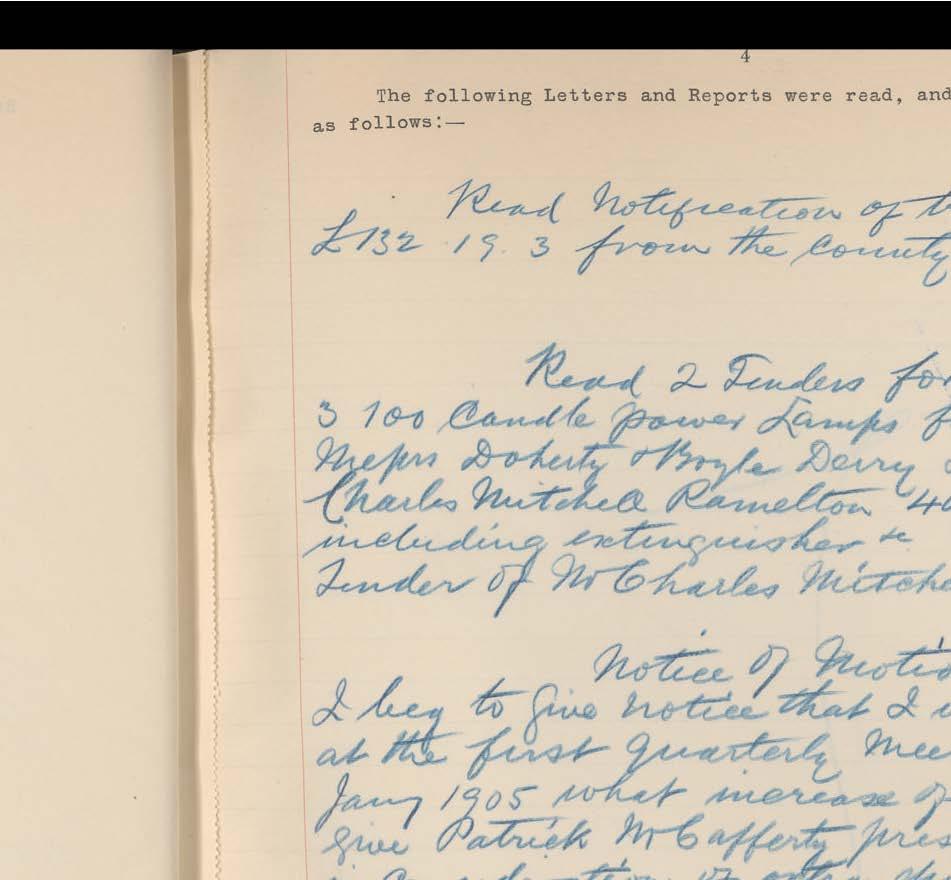 4
The following Letters and Reports were read, and
as follows:—
Read Notification of
£132 19. 3 from the County
Read 2 Tenders for
3 100 Candle power Lamps
Messrs Doherty & Boyle Derry
Charles Mitchell Ramelton
including extinguisher &c
Tender of Mr Charles Mitch
Notice of Motio
I beg to give notice that I
at the first quarterly Mee
Jany 1905 what increase of
give Patrick McCafferty pres